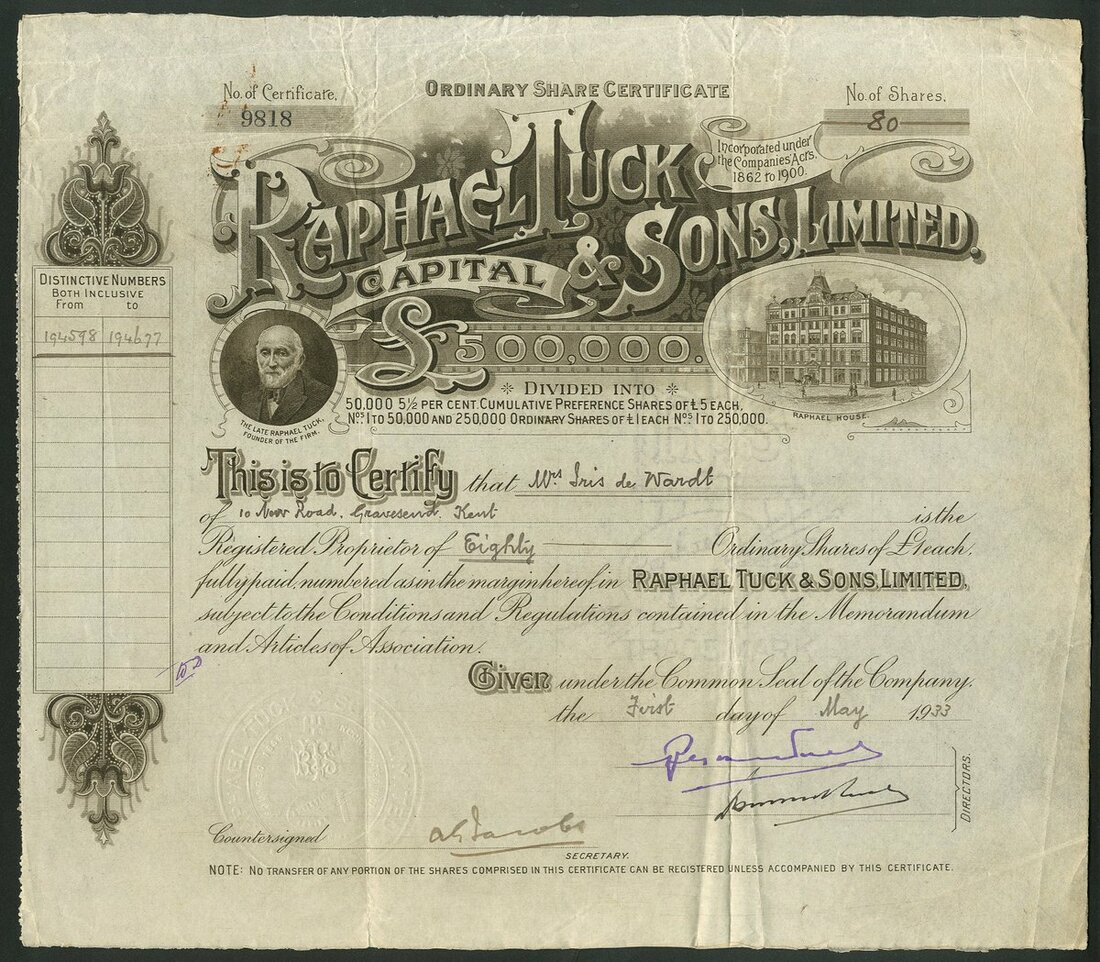 No. of Certificate,
9818
ORDINARY SHARE CERTIFICATE
No. of Shares,
80
RAPHAEL TUCK
& SONS, LIMITED.
Incorporated under
the Companies' Acts.
1862 to 1900.
CAPITAL
£500,000.
DIVIDED INTO
50,000 5½ PER CENT. CUMULATIVE PREFERENCE SHARES OF £5 EACH,
Nos. 1 TO 50,000 AND 250,000 ORDINARY SHARES OF £1 EACH Nos. 1 TO 250,000.
THE LATE RAPHAEL TUCK,
FOUNDER OF THE FIRM.
RAPHAEL HOUSE.
DISTINCTIVE NUMBERS
BOTH INCLUSIVE
From to
194598 194677
This is to Certify that Mrs Iris de Wardt
of 10 New Road, Gravesend, Kent is the
Registered Proprietor of Eighty Ordinary Shares of £1 each,
fully paid, numbered as in the margin hereof in RAPHAEL TUCK & SONS, LIMITED,
subject to the Conditions and Regulations contained in the Memorandum
and Articles of Association.
Given under the Common Seal of the Company,
the First day of May 1933
DIRECTORS.
Countersigned A G Jacobs
SECRETARY.
NOTE: NO TRANSFER OF ANY PORTION OF THE SHARES COMPRISED IN THIS CERTIFICATE CAN BE REGISTERED UNLESS ACCOMPANIED BY THIS CERTIFICATE.